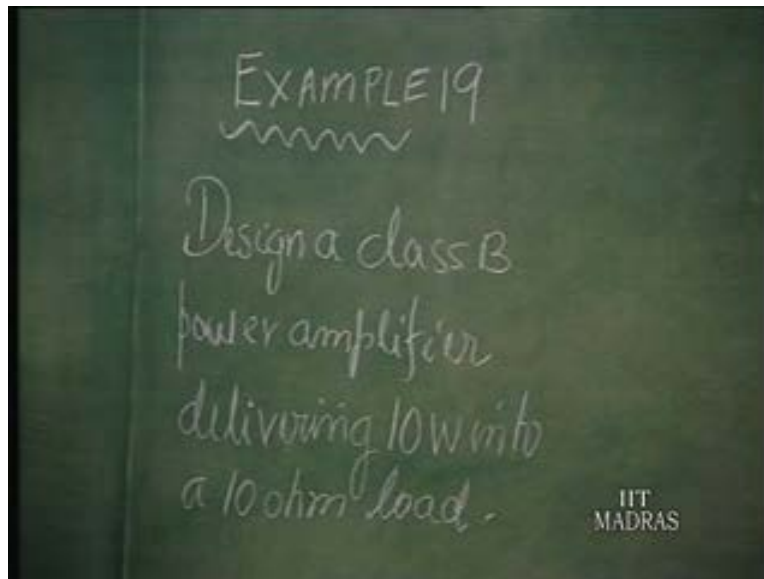 EXAMPLE 19
Design a class B
power amplifier
delivering 10W into
a 10 ohm load.
IIT
MADRAS